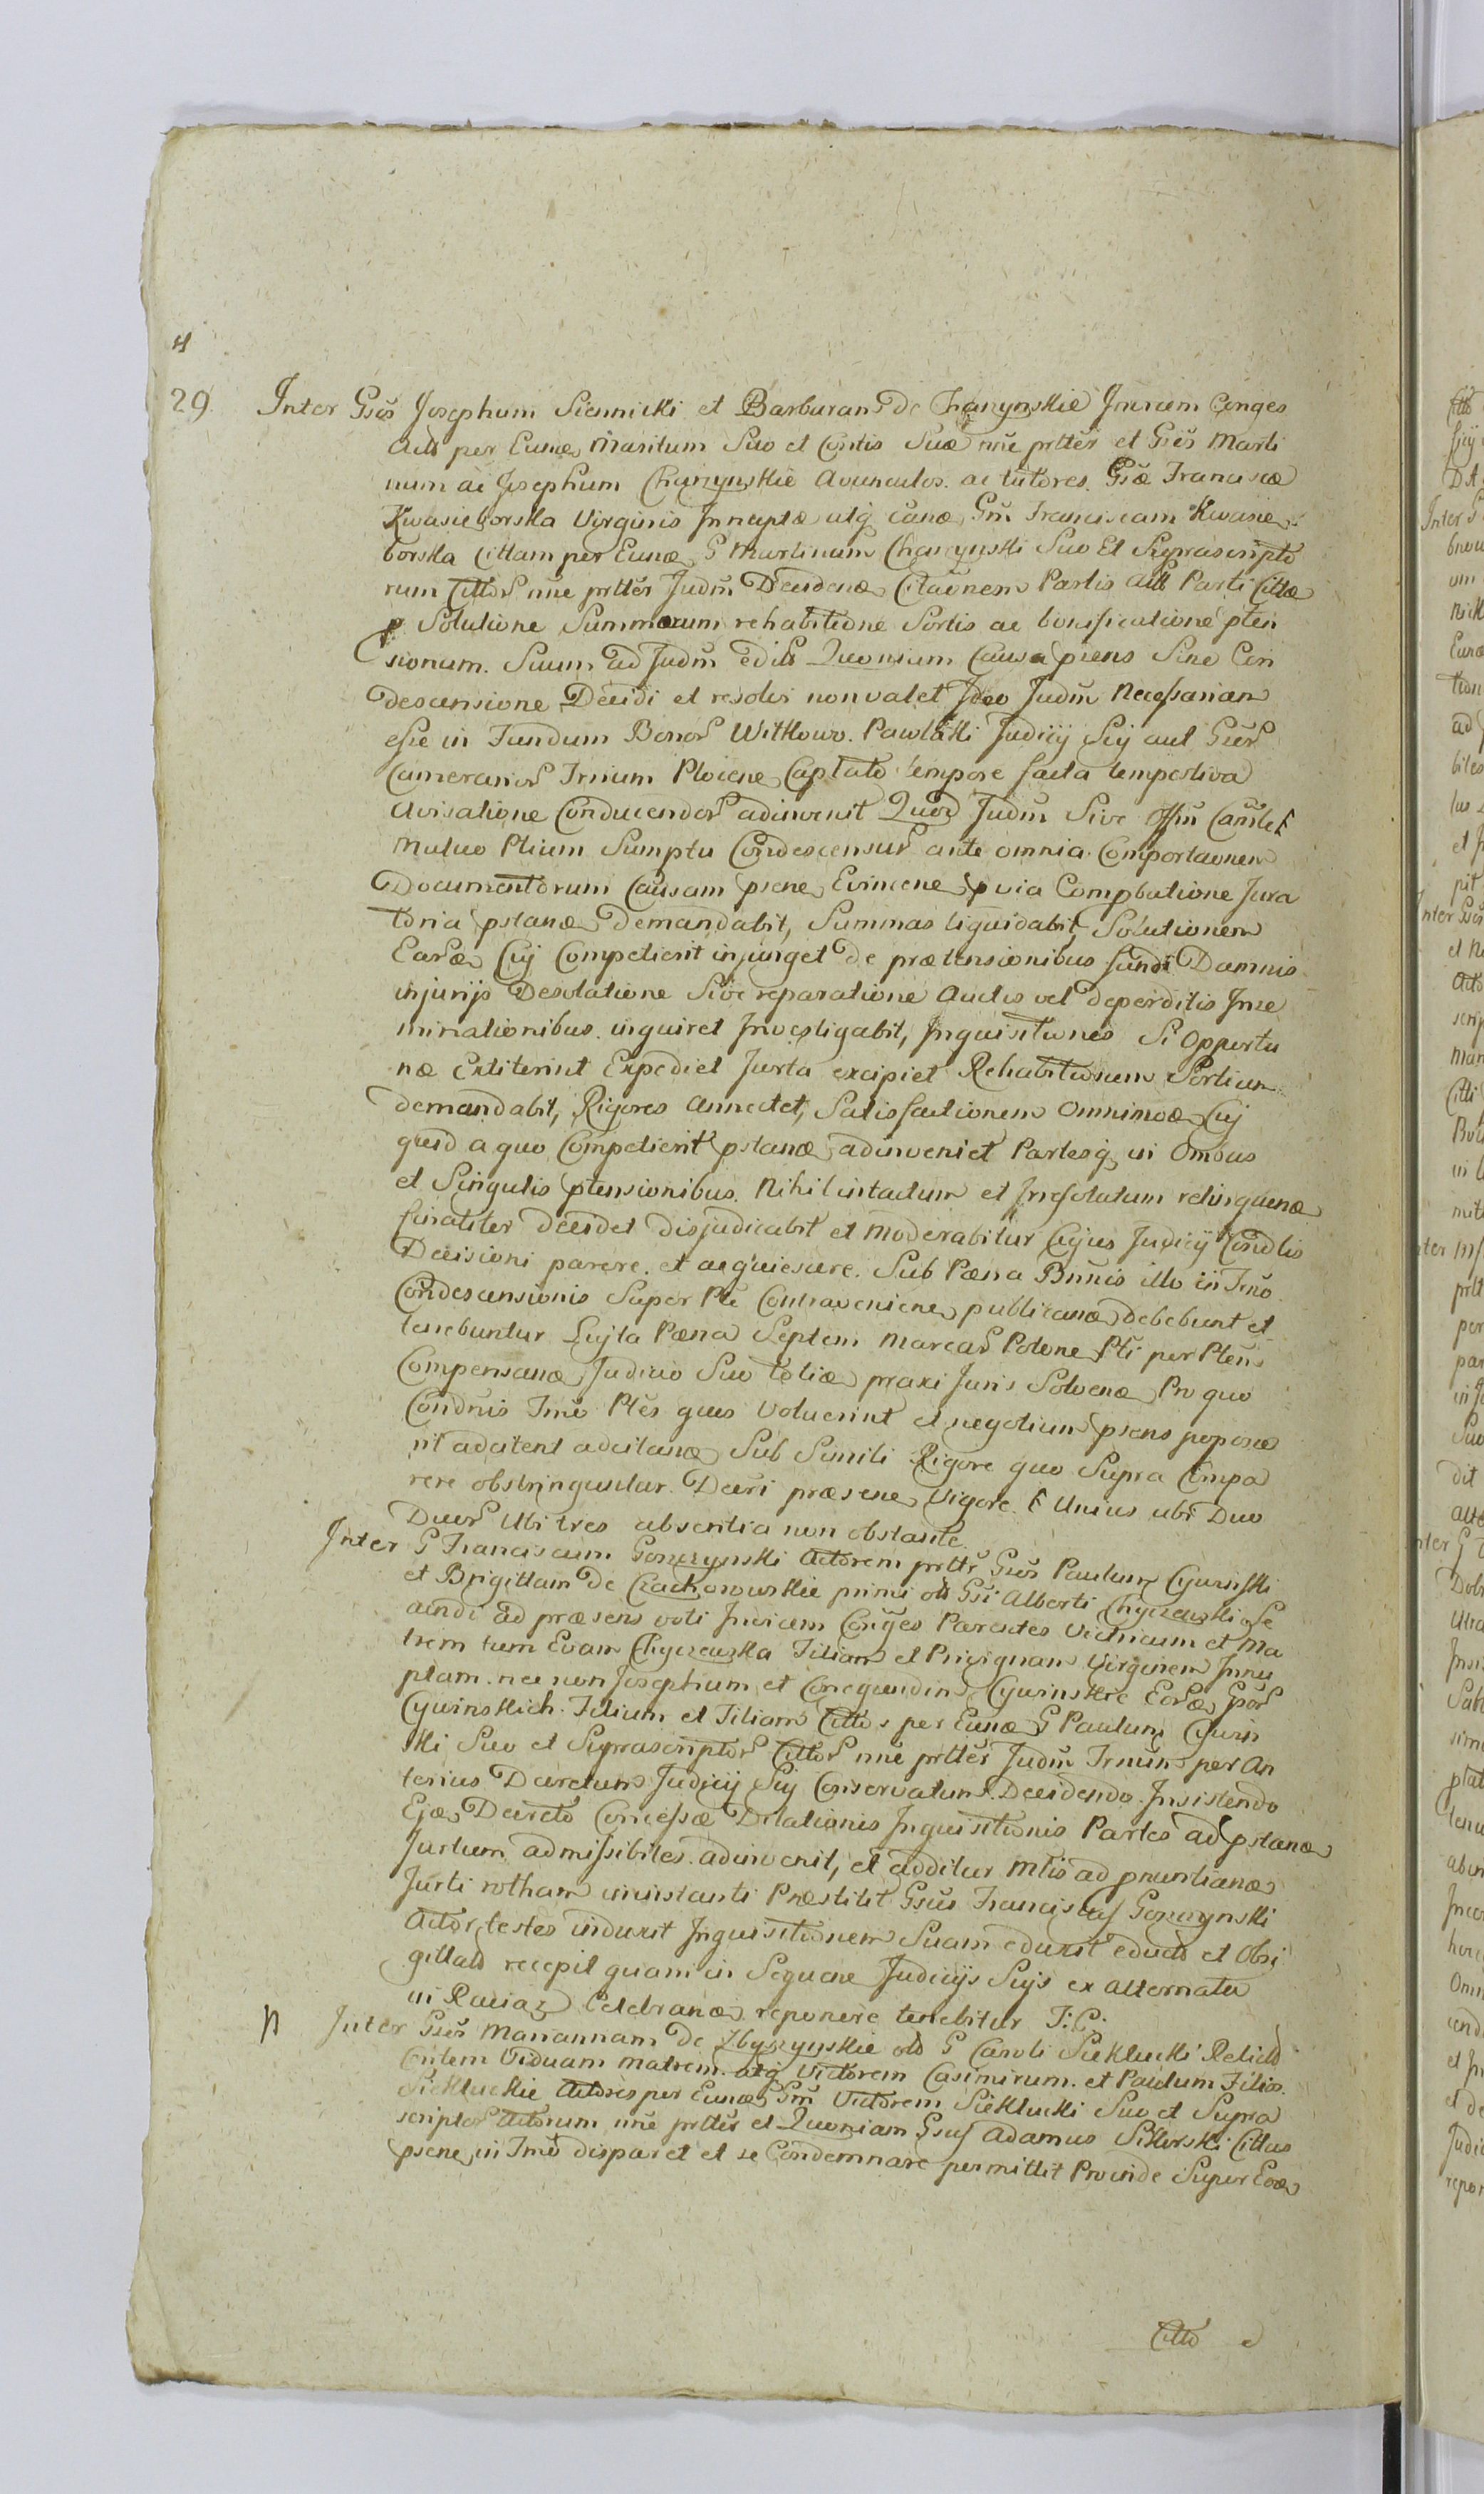 29. Inter Gsos Josephum Siennicki et Barbaram de Charzynskie Invicem Conges
Actos per Eund Maritum Suo et Contis Suæ nne prttēs et Gsos Marti
num ac Josephum Charzynskie Avunculos ac tutores Gsæ Franciscæ
Kwasieborska Virginis Innuptæ utq canæ Gm Franciscam Kwasie
borska Cittam per Eund G Martinum Charzynski Suo Et Suprascripto
rum Cittor nne prttēs Judm Decidend Citaonem Partis Actæ Parti Cittæ
p Solutione Summarum rehabitione Sortis ac bonificatione pten
sionum Suum ad Judm edit Quoniam Causa psens Sine Con
descensione Decidi et resolvi non valet Ideo Judm Necessariam
esse in Fundum Bonor Witkowo Pawlaki Judicij Sij aut Gsor
Camerarior Trnium Plocene Captato tempore facta tempestiva
Avisatione Conducendor adinvenit Quod Judm Sive Offm Camle
Mutuo Ptium Sumptu Condescensur ante omnia Comportaonem
Documentorum Causam psene Evincene pvia Compbatione Jura
toria pstand demandabit, Summas liquidabit, Solutionem
Eard Cuj Competierit injunget De prætensionibus fundi Damnis
injurijs Desolatione Sive reparatione Auctis vel deperditis Inse
minationibus inquiret Investigabit, Inquisitiones Si Opportu
næ Extiterint Expediet Jurta excipiet Rehabitionem Sortium
demandabit, Rigores annectet, Satisfactionem Omnimod Cuj
quid a quo Competierit pstand adinveniet Partesq in Ombus
et Singulis ptensionibus Nihil intactum et Irresolutum relinquend
finaliter decidet disjudicabit et Moderabitur Cujus Judicij Condlis
Decisioni parere et acquiescere Sub Pæna Bnnis illo in Trno
Condescensionis Super Pte Contraveniene publicand debebunt et
tenebuntur Lujta Pæna Septem Marcar Polone Pti per Ptem
Compensand Judicio Suo totid praxi Juris Solvend Pro quo
Condnis Trno Ptes quos voluerint et negotium psens poposce
rit adcitent adcitand Sub Simili Rigore quo Supra Compa
rere obstringuntur Decri præsene Vigore Unius ubi Duo
Duor Ubi tres absentia non obstante
Inter G Franciscum Gonczynski Actorem prtts Gsos Paulum Cywinski
et Brigittam de Czachorowskie primi ols Gsi Alberti Chyczewski Se
cundi ad præsens voti Invicem Conges Parentes Vitricum et Ma
trem tum Evam Chyczewska Filiam et Privignam Virginem Innu
ptam nec non Josephum et Conegundim Cywinskie Eord Gsor
Cywinskich Filium et Filiam Cittos per Eund G Paulum Cywin
ski Suo et Suprascriptor Cittor nne prttēs Judm Trnum per An
terius Decretum Judicij Sij Conservatum Decidendo Insistendo
Ejd Decreto Concessæ Delationis Inquisitionis Partes ad pstand
Jurtum admissibiles adinvenit, et additur Mtis ad pnuntiand
Jurti rotham ministanti Præstitit Gsus Franciscus Gonczynski
Actor testes induxit Inquisitionem Suam eduxit educto et Obsi
gillato recepit quam in Sequene Judicijs Sijs ex alternata
in Raciaz Celebrand reponere tenebitur I: C:
Inter Gsos Mariannam de Zbyszynskie ols G Caroli Sieklucki Relicto
Contem Viduam Matrem atq Victorem Casimirum et Paulum Filios
Siekluckie Actores per Eund Gm Victorem Sieklucki Suo et Supra
scriptor Actorum nne prttēs et Quoniam Gsus Adamus Sikorski Cittus
psene in Trno disparet et se Condemnare permittit Proinde Super Eod
Citto